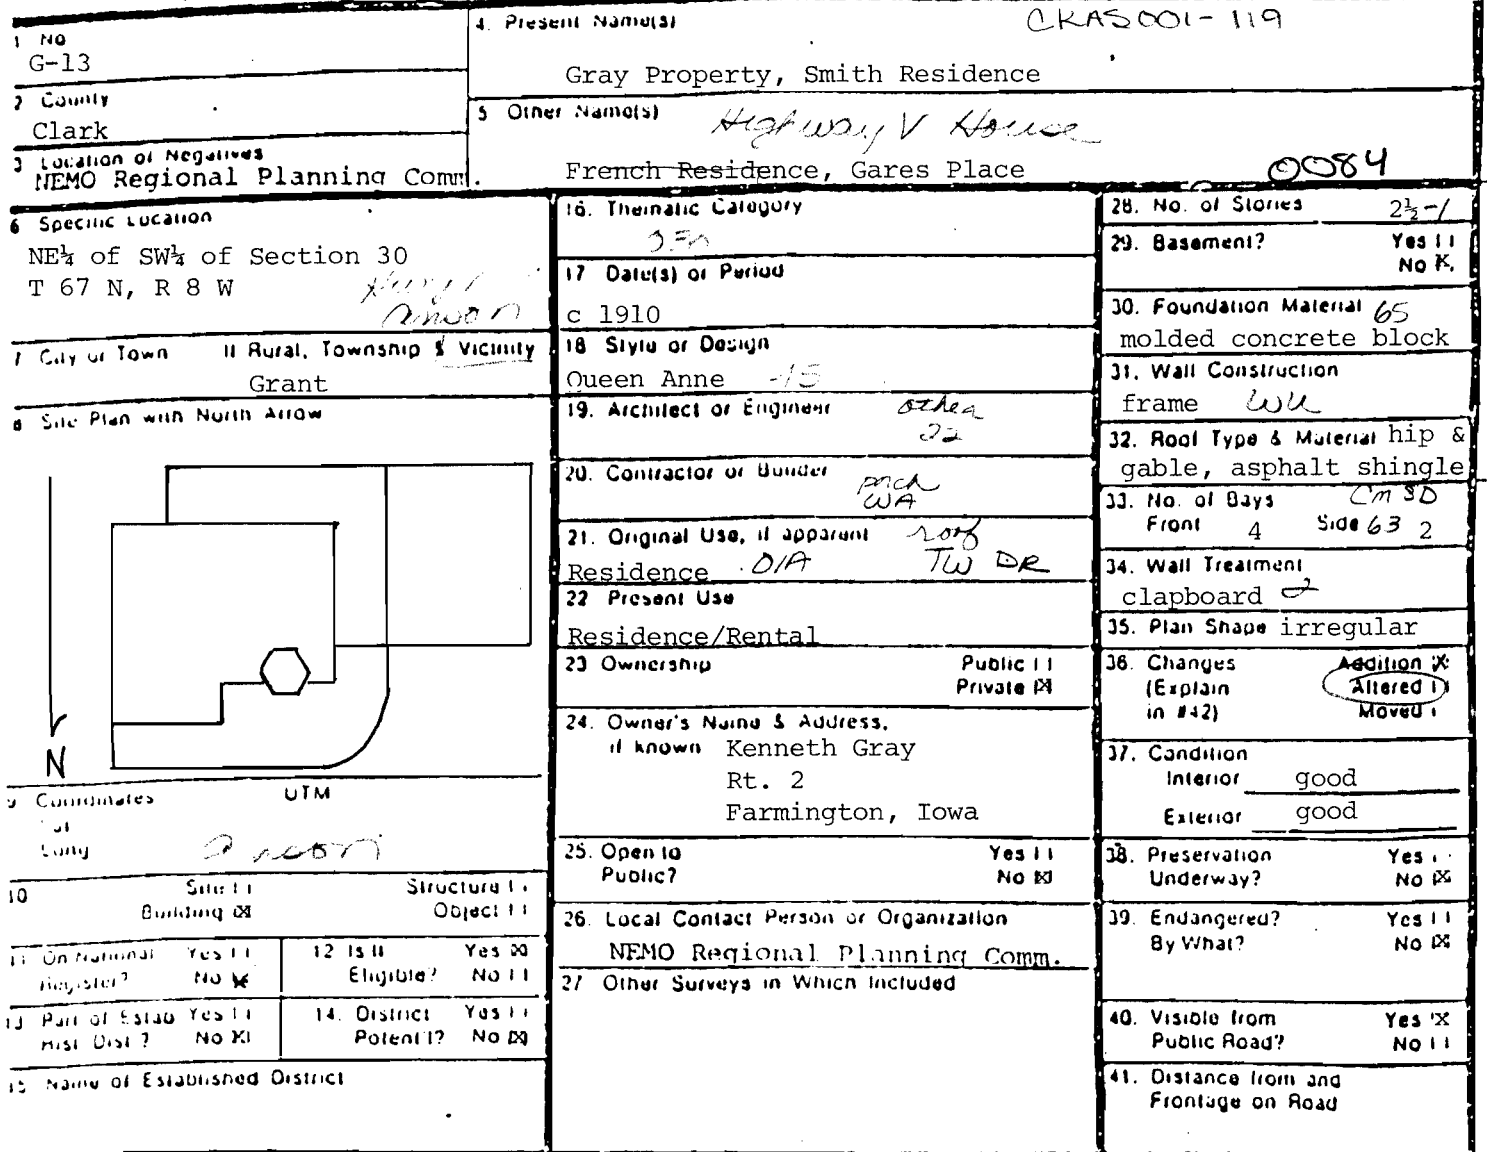 1 No
G-13
4. Present Name(s)
CKAS001-119
Gray Property, Smith Residence
2 County
Clark
5 Other Name(s)
Highway V House
French Residence, Gares Place
0084
3 Location of Negatives
NEMO Regional Planning Comm.
6 Specific Location
NE¼ of SW¼ of Section 30
T 67 N, R 8 W
Anson
7 City or Town If Rural, Township & Vicinity
Grant
8 Site Plan with North Arrow
N
9 Coordinates UTM
Lat
Long
Anson
10 Site [ ] Structure [ ]
Building [X] Object [ ]
11 On National Register? Yes [ ] No [X]
12 Is It Eligible? Yes [X] No [ ]
13 Part of Estab Hist Dist? Yes [ ] No [X]
14. District Potent'l? Yes [ ] No [X]
15 Name of Established District
16. Thematic Category
17 Date(s) or Period
c 1910
18 Style or Design
Queen Anne -45
19. Architect or Engineer
other
22
20. Contractor or Builder
porch
WA
21. Original Use, if apparent
roof
Residence 01A TW DR
22 Present Use
Residence/Rental
23 Ownership Public [ ]
Private [X]
24. Owner's Name & Address,
if known Kenneth Gray
Rt. 2
Farmington, Iowa
25. Open to Public? Yes [ ] No [X]
26. Local Contact Person or Organization
NEMO Regional Planning Comm.
27 Other Surveys in Which Included
28. No. of Stories 2½-1
29. Basement? Yes [ ]
No [X]
30. Foundation Material 65
molded concrete block
31. Wall Construction
frame
32. Roof Type & Material hip &
gable, asphalt shingle
33. No. of Bays
Front 4 Side 63 2
34. Wall Treatment
clapboard 2
35. Plan Shape irregular
36. Changes Addition [X]
(Explain Altered [ ]
in #42) Moved [ ]
37. Condition
Interior good
Exterior good
38. Preservation Underway? Yes [ ] No [X]
39. Endangered? Yes [ ]
By What? No [X]
40. Visible from Public Road? Yes [X] No [ ]
41. Distance from and
Frontage on Road